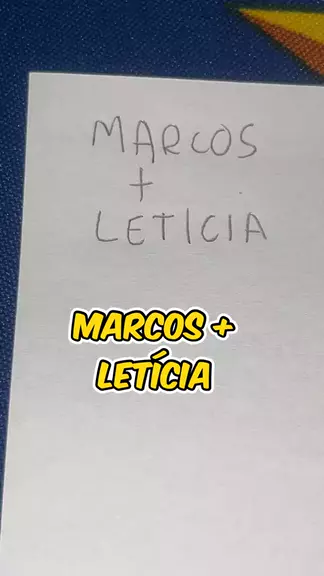 MARCOS
+
LETICIA
MARCOS +
LETÍCIA